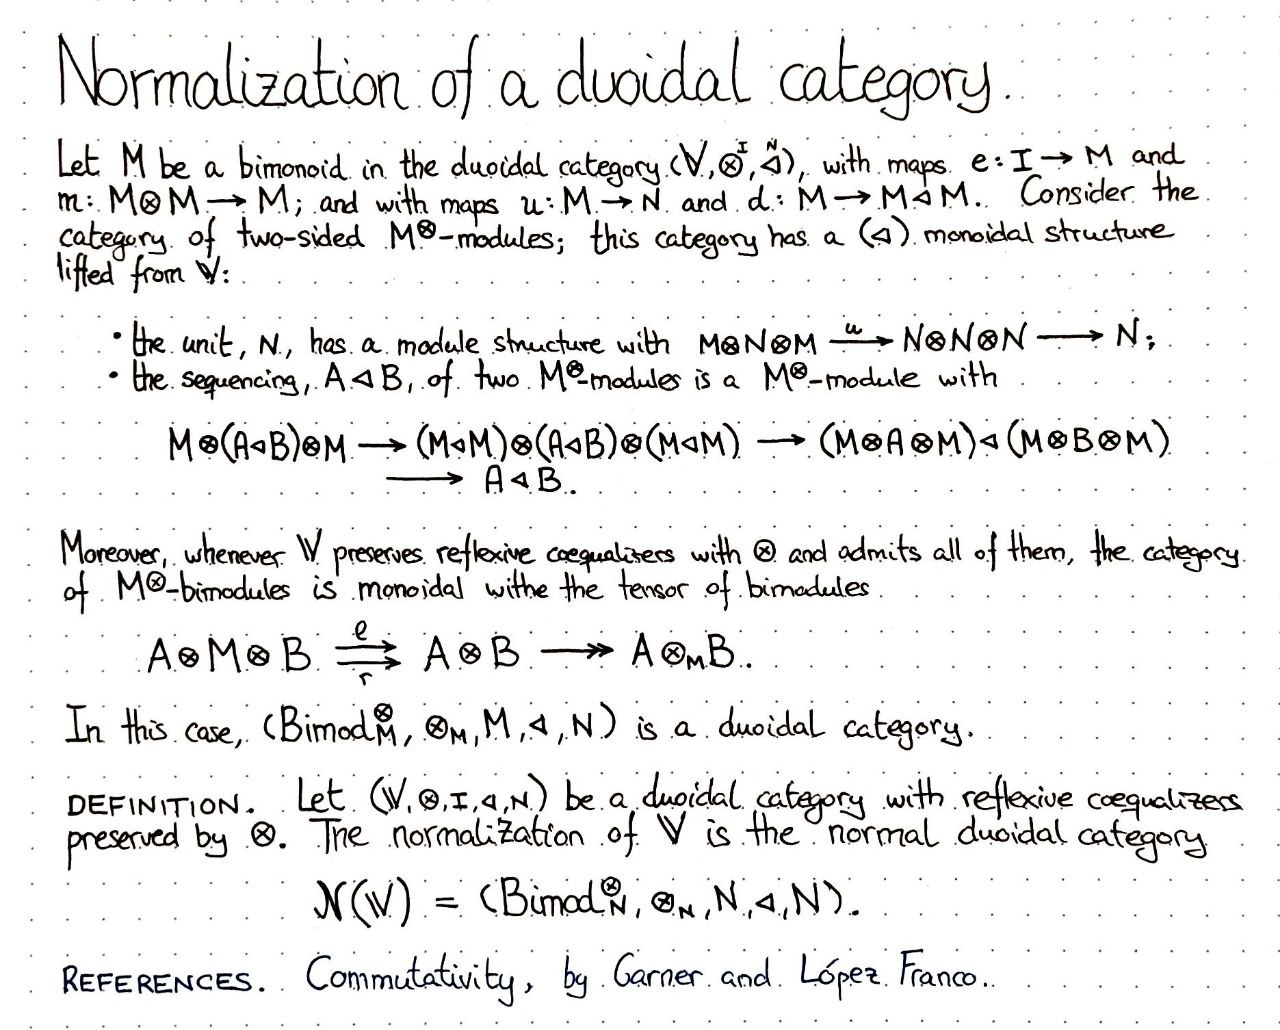 Normalization of a duoidal category.
Let M be a bimonoid in the duoidal category (𝕍,⊗ᴵ,◁ᴺ), with maps e: I → M and
m: M⊗M → M; and with maps u: M → N and d: M → M◁M. Consider the
category of two-sided M^⊗-modules; this category has a (◁) monoidal structure
lifted from 𝕍:
• the unit, N, has a module structure with M⊗N⊗M —u→ N⊗N⊗N ⟶ N;
• the sequencing, A◁B, of two M^⊗-modules is a M^⊗-module with
M⊗(A◁B)⊗M ⟶ (M◁M)⊗(A◁B)⊗(M◁M) ⟶ (M⊗A⊗M)◁(M⊗B⊗M)
⟶ A◁B.
Moreover, whenever 𝕍 preserves reflexive coequalizers with ⊗ and admits all of them, the category
of M^⊗-bimodules is monoidal withe the tensor of bimodules
A⊗M⊗B ⇉ (l, r) A⊗B ↠ A⊗_M B.
In this case, (Bimod^⊗_M, ⊗_M, M, ◁, N) is a duoidal category.
DEFINITION. Let (𝕍,⊗,I,◁,N) be a duoidal category with reflexive coequalizers
preserved by ⊗. The normalization of 𝕍 is the normal duoidal category
𝒩(𝕍) = (Bimod^⊗_N, ⊗_N, N, ◁, N).
REFERENCES. Commutativity, by Garner and López Franco.